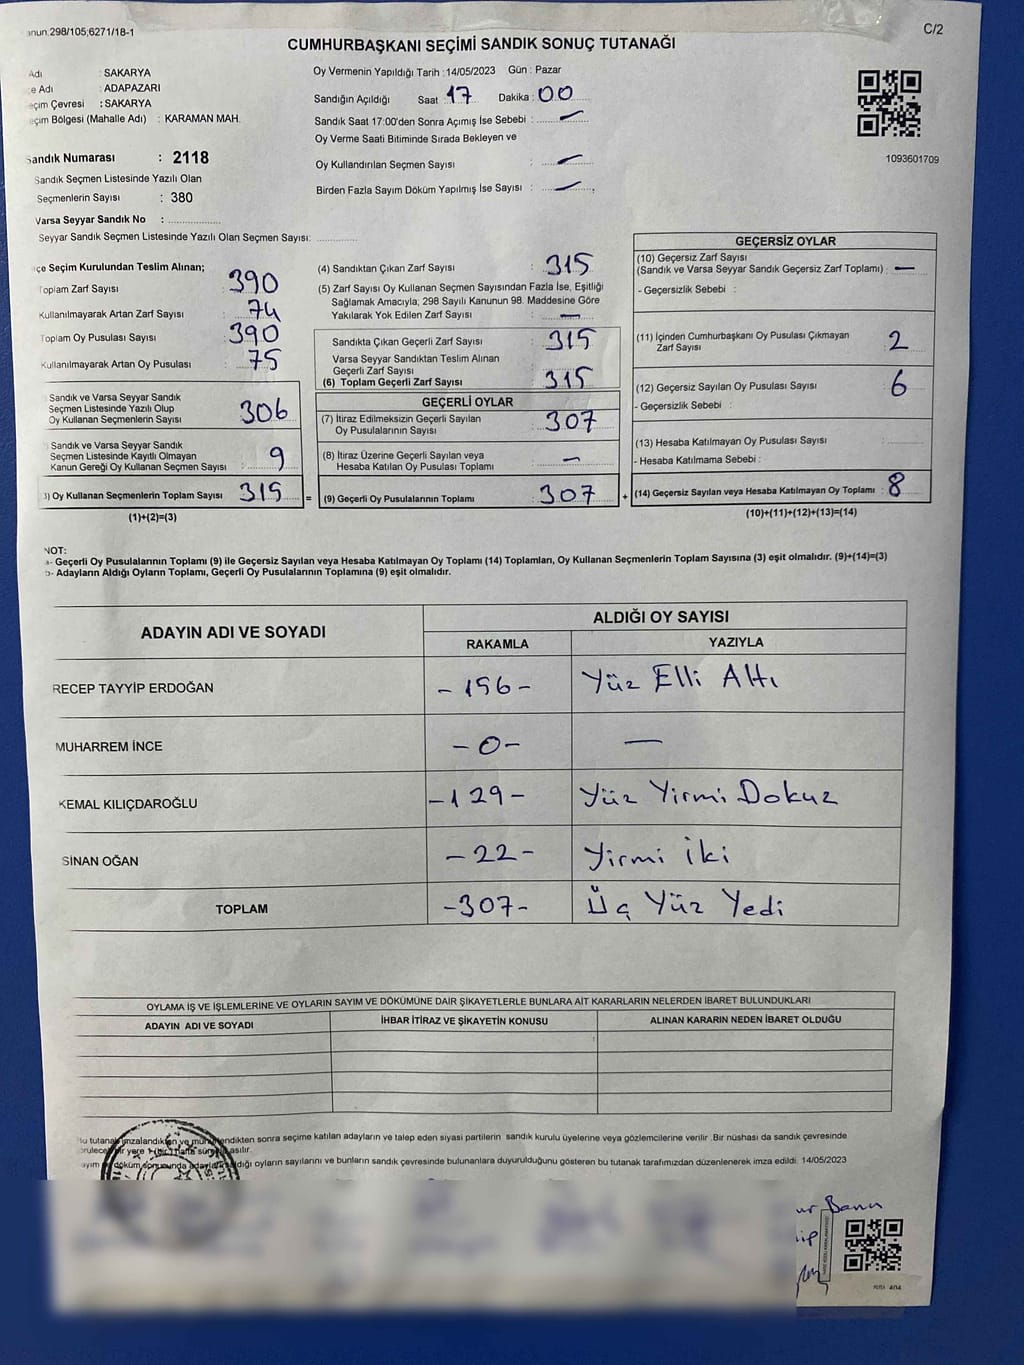 anun:298/105;6271/18-1
C/2
CUMHURBAŞKANI SEÇİMİ SANDIK SONUÇ TUTANAĞI
Adı : SAKARYA
e Adı : ADAPAZARI
eçim Çevresi : SAKARYA
eçim Bölgesi (Mahalle Adı) : KARAMAN MAH.
Sandık Numarası : 2118
Sandık Seçmen Listesinde Yazılı Olan
Seçmenlerin Sayısı : 380
Varsa Seyyar Sandık No :
Seyyar Sandık Seçmen Listesinde Yazılı Olan Seçmen Sayısı:
Oy Vermenin Yapıldığı Tarih :14/05/2023 Gün : Pazar
Sandığın Açıldığı Saat : 17 Dakika : 00
Sandık Saat 17:00'den Sonra Açımış İse Sebebi : —
Oy Verme Saati Bitiminde Sırada Bekleyen ve
Oy Kullandırılan Seçmen Sayısı : —
Birden Fazla Sayım Döküm Yapılmış İse Sayısı : —
1093601709
çe Seçim Kurulundan Teslim Alınan;
Toplam Zarf Sayısı : 390
Kullanılmayarak Artan Zarf Sayısı : 74
Toplam Oy Pusulası Sayısı : 390
Kullanılmayarak Artan Oy Pusulası : 75
Sandık ve Varsa Seyyar Sandık
Seçmen Listesinde Yazılı Olup
Oy Kullanan Seçmenlerin Sayısı : 306
Sandık ve Varsa Seyyar Sandık
Seçmen Listesinde Kayıtlı Olmayan
Kanun Gereği Oy Kullanan Seçmen Sayısı : 9
3) Oy Kullanan Seçmenlerin Toplam Sayısı 315 =
(1)+(2)=(3)
(4) Sandıktan Çıkan Zarf Sayısı : 315
(5) Zarf Sayısı Oy Kullanan Seçmen Sayısından Fazla İse, Eşitliği
Sağlamak Amacıyla; 298 Sayılı Kanunun 98. Maddesine Göre
Yakılarak Yok Edilen Zarf Sayısı : —
Sandıkta Çıkan Geçerli Zarf Sayısı : 315
Varsa Seyyar Sandıktan Teslim Alınan
Geçerli Zarf Sayısı :
(6) Toplam Geçerli Zarf Sayısı : 315
GEÇERLİ OYLAR
(7) İtiraz Edilmeksizin Geçerli Sayılan
Oy Pusulalarının Sayısı : 307
(8) İtiraz Üzerine Geçerli Sayılan veya
Hesaba Katılan Oy Pusulası Toplamı : —
(9) Geçerli Oy Pusulalarının Toplamı : 307 +
GEÇERSİZ OYLAR
(10) Geçersiz Zarf Sayısı
(Sandık ve Varsa Seyyar Sandık Geçersiz Zarf Toplamı) : —
- Geçersizlik Sebebi :
(11) İçinden Cumhurbaşkanı Oy Pusulası Çıkmayan
Zarf Sayısı : 2
(12) Geçersiz Sayılan Oy Pusulası Sayısı : 6
- Geçersizlik Sebebi :
(13) Hesaba Katılmayan Oy Pusulası Sayısı :
- Hesaba Katılmama Sebebi :
(14) Geçersiz Sayılan veya Hesaba Katılmayan Oy Toplamı : 8
(10)+(11)+(12)+(13)=(14)
NOT:
a- Geçerli Oy Pusulalarının Toplamı (9) ile Geçersiz Sayılan veya Hesaba Katılmayan Oy Toplamı (14) Toplamları, Oy Kullanan Seçmenlerin Toplam Sayısına (3) eşit olmalıdır. (9)+(14)=(3)
b- Adayların Aldığı Oyların Toplamı, Geçerli Oy Pusulalarının Toplamına (9) eşit olmalıdır.
ADAYIN ADI VE SOYADI
ALDIĞI OY SAYISI
RAKAMLA YAZIYLA
RECEP TAYYİP ERDOĞAN -156- Yüz Elli Altı
MUHARREM İNCE -0- —
KEMAL KILIÇDAROĞLU -129- Yüz Yirmi Dokuz
SİNAN OĞAN -22- Yirmi İki
TOPLAM -307- Üç Yüz Yedi
OYLAMA İŞ VE İŞLEMLERİNE VE OYLARIN SAYIM VE DÖKÜMÜNE DAİR ŞİKAYETLERLE BUNLARA AİT KARARLARIN NELERDEN İBARET BULUNDUKLARI
ADAYIN ADI VE SOYADI İHBAR İTİRAZ VE ŞİKAYETİN KONUSU ALINAN KARARIN NEDEN İBARET OLDUĞU
Bu tutanak imzalandıktan ve mühürlendikten sonra seçime katılan adayların ve talep eden siyasi partilerin sandık kurulu üyelerine veya gözlemcilerine verilir .Bir nüshası da sandık çevresinde
görülecek bir yere 1 (bir) hafta süreyle asılır.
ayım döküm sonucunda adayların aldığı oyların sayılarını ve bunların sandık çevresinde bulunanlara duyurulduğunu gösteren bu tutanak tarafımızdan düzenlenerek imza edildi. 14/05/2023